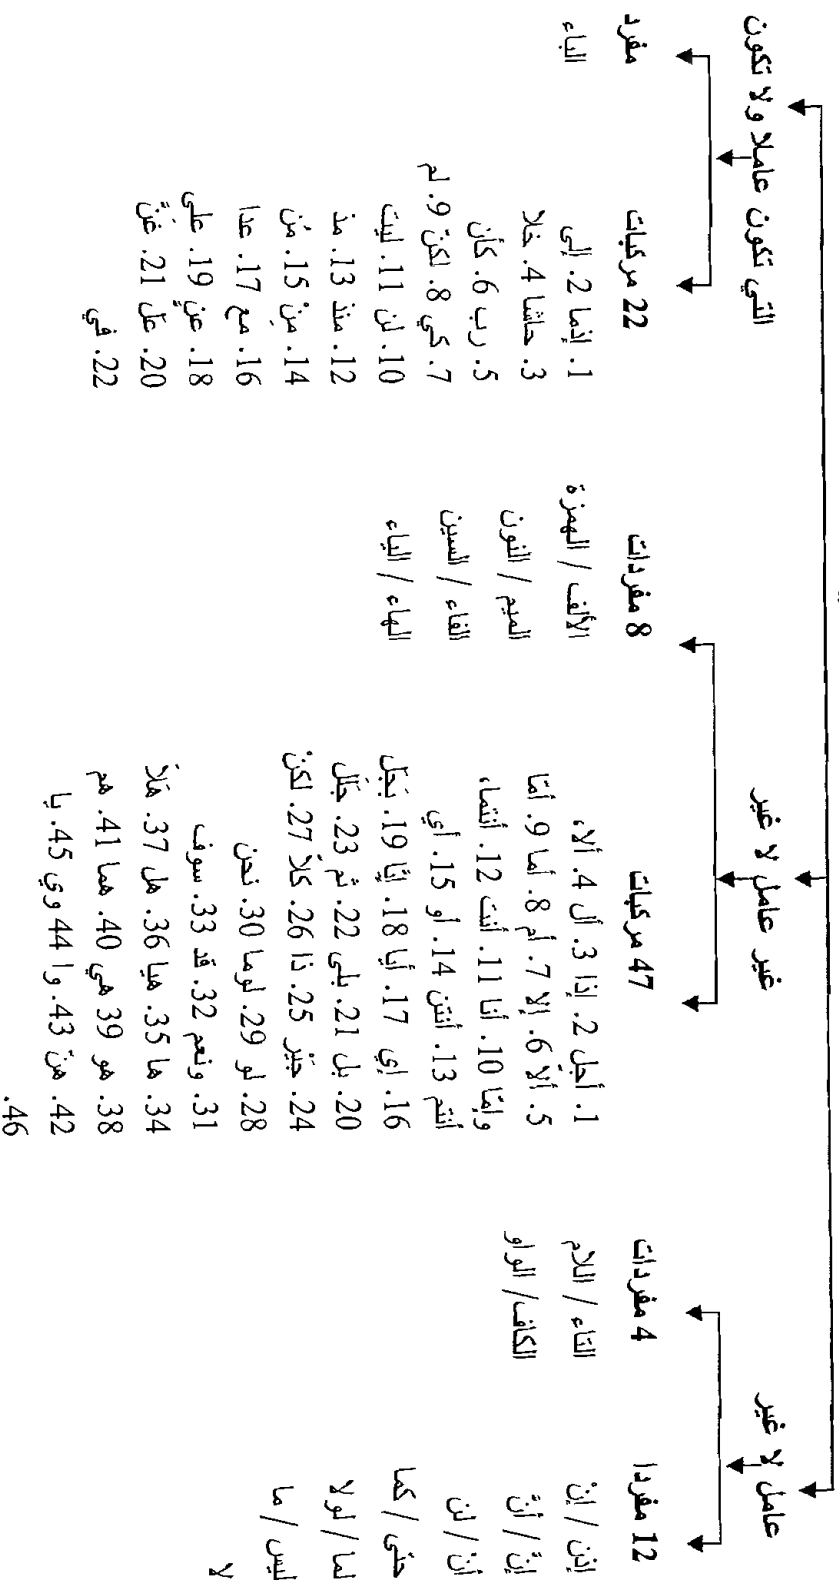 عامل لا غير
12 مفردا
إذن / إنْ
إنّ / أنّ
أنْ / لن
حتّى / كما
لما / لولا
ليس / ما
لا
4 مفردات
التاء / اللام
الكاف/ الواو
غير عامل لا غير
47 مركبات
1. أجل 2. إذا 3. أل 4. ألا،
5. ألاّ 6. إلا 7. أم 8. أما 9. أمّا
وإمّا 10. أنا 11. أنت 12. أنتما،
أنتم 13. أنتن 14. أو 15. أي
16. إي 17. أيا 18. إيّا 19. بَجَل
20. بل 21. بلى 22. ثم 23. جَلَل
24. جَيْر 25. ذا 26. كلاّ 27. لكنْ
28. لوما 29. لو 30. نحن
31. ونعم 32. قد 33. سوف
34. ها 35. هيا 36. هل 37. هَلاّ
38. هو 39 هي 40. هما 41. هم
42. هنّ 43. وا 44 وي 45. يا
46.
8 مفردات
الألف / الهمزة
الميم / النون
الفاء / السين
الهاء / الياء
التي تكون عاملا ولا تكون
22 مركبات
1. إذما 2. إلى
3. حاشا 4. خلا
5. رب 6. كأن
7. كي 8. لكنّ 9. لم
10. لن 11. ليت
12. منذ 13. مذ
14. مِنْ 15. مُن
16. مع 17. عدا
18. عن 19. على
20. عل 21. عَنَّ
22. في
مفرد
الباء